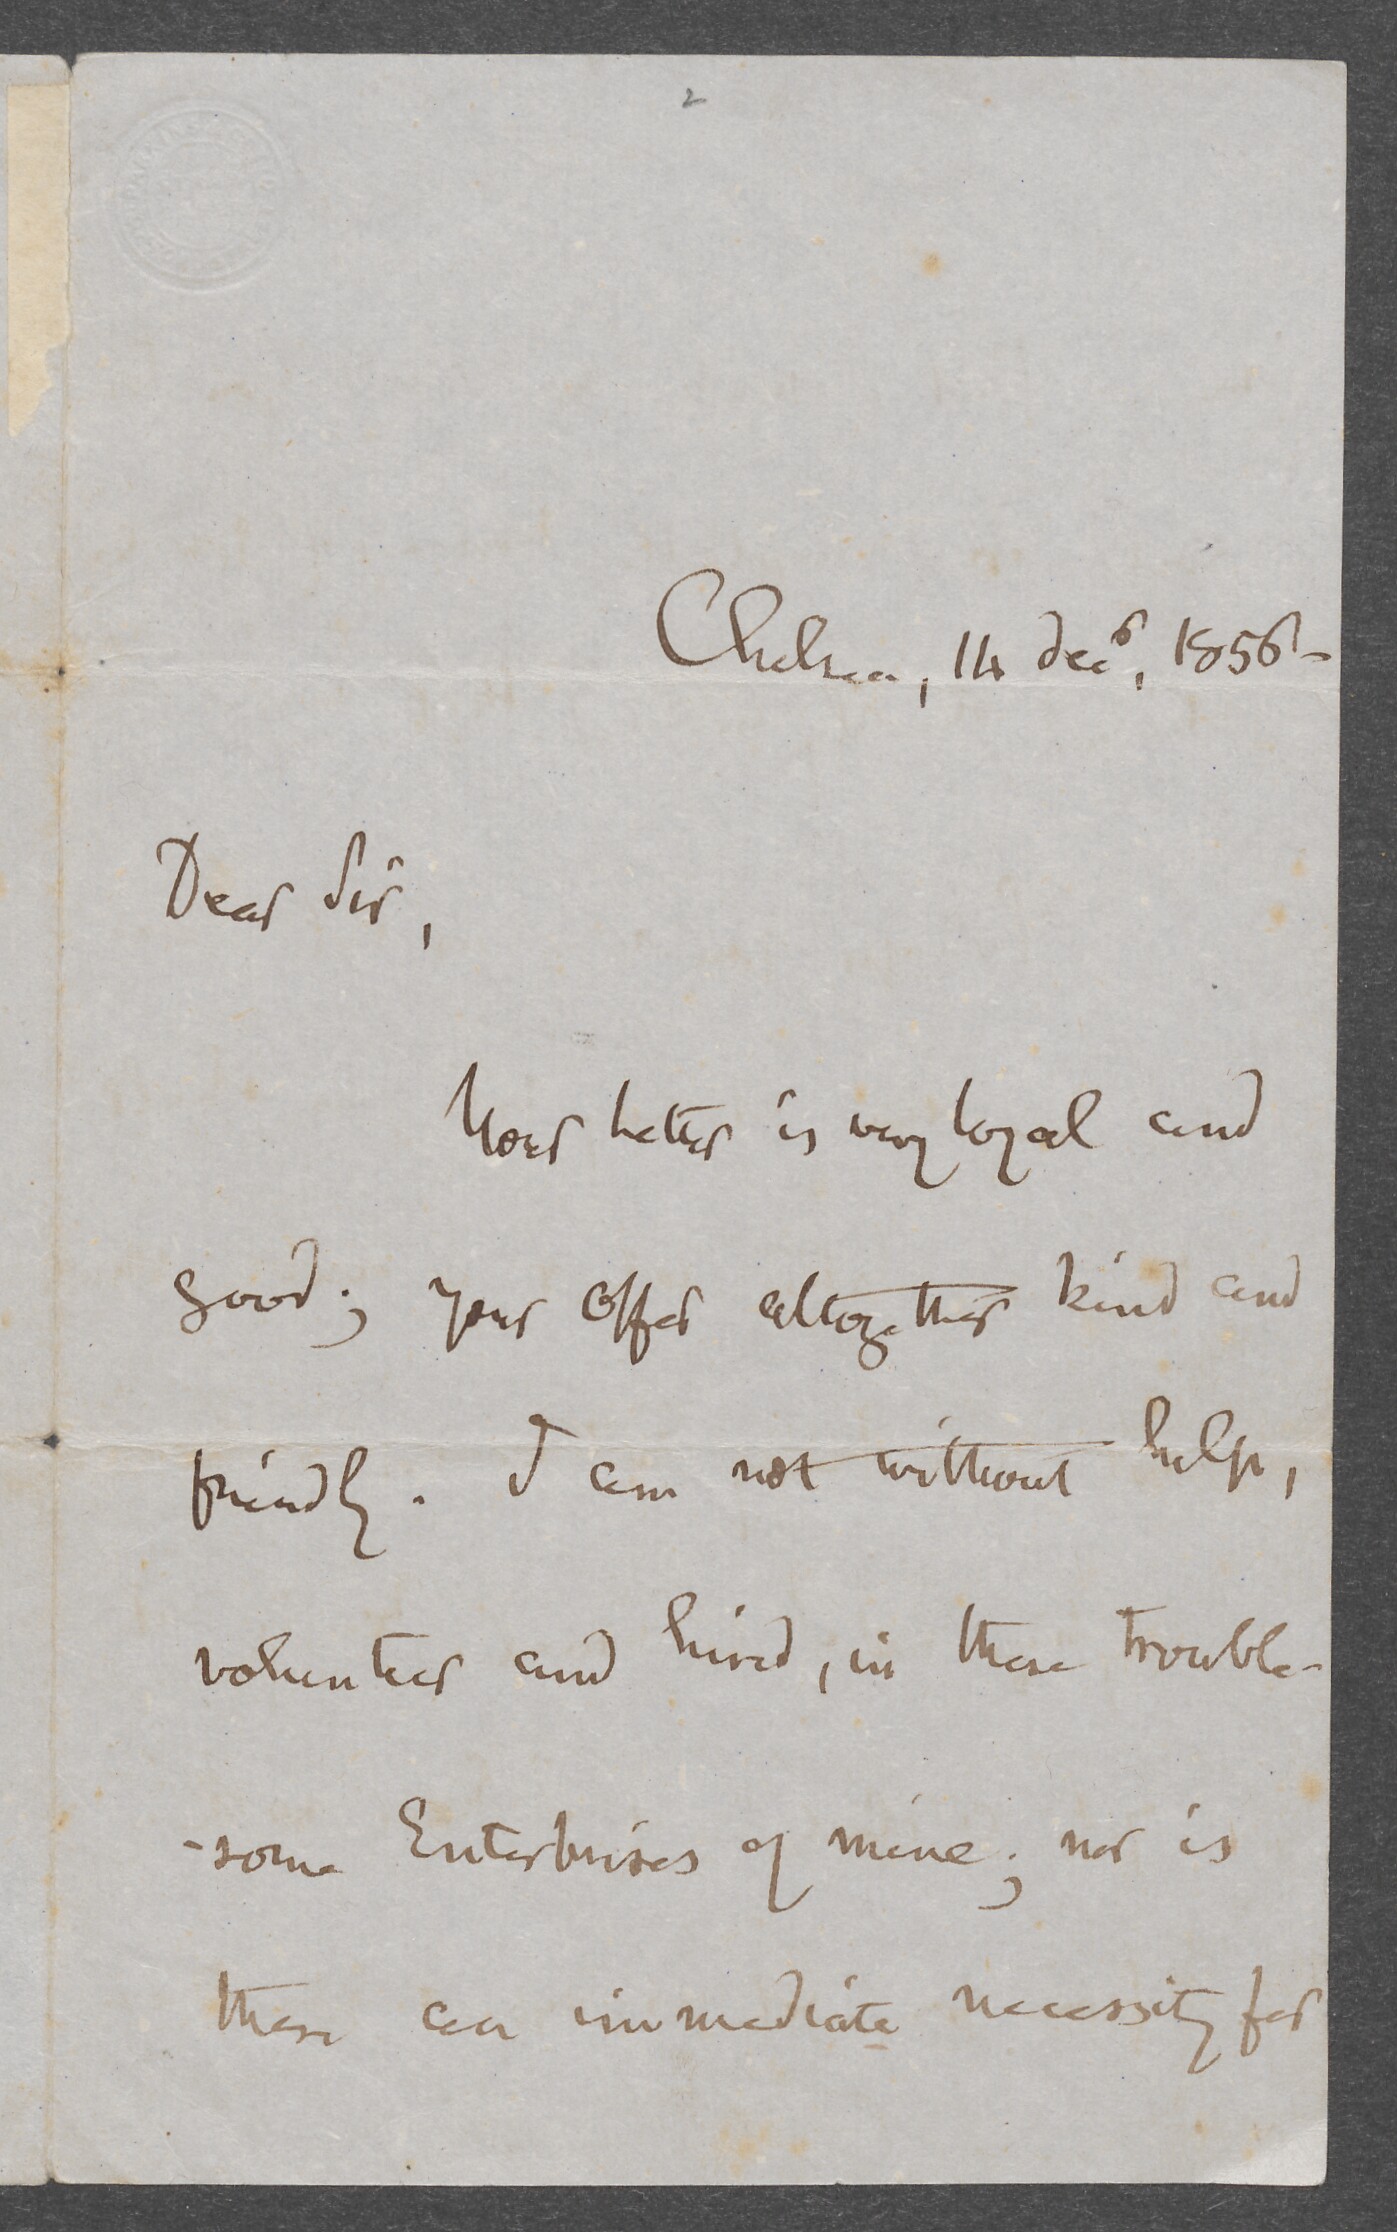 2
Chelsea, 14 decr, 1856-
Dear Sir,
Your Letter is very loyal and
good; your offer altogether kind and
friendly. I am not without help,
volunteer and hired, in these trouble-
-some Enterprises of mine; nor is
there an immediate necessity for